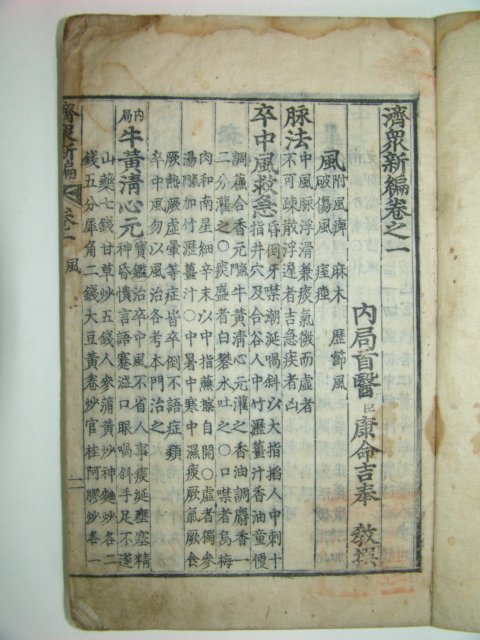 濟衆新編卷之一
內局首醫臣康命吉奉 敎撰
風 附風痺 麻木 歷節風
破傷風 痓痙
脉法 中風脉浮滑兼痰氣微而虛者
不可疎散浮遲者吉急疾者凶
卒中風救急 昏倒牙噤潮涎喎斜以大指搯人中刺十
指井穴及合谷人中竹瀝薑汁香油童便
調蘓合香元噤牛黃淸心元灌之香油調麝香一
二分灌之○痰盛者白礬水吐之○口噤者烏梅
肉和南星細辛末以中指蘸擦自開○虛者獨參
湯噤加竹瀝薑汁○中暑中寒中濕痰厥氣厥食
厥熱厥虛暈等症皆卒倒不語症類
卒中風勿以風治各考本門治之
內局牛黃淸心元 寶鑑治卒中風不省人事痰涎壅塞精
神昏憒言語蹇澁口眼喎斜手足不遂
山藥七錢甘草炒五錢人參蒲黃炒神麯炒各二
錢五分犀角二錢大豆黃卷炒官桂阿膠炒各一
濟衆新編 卷一 風 一